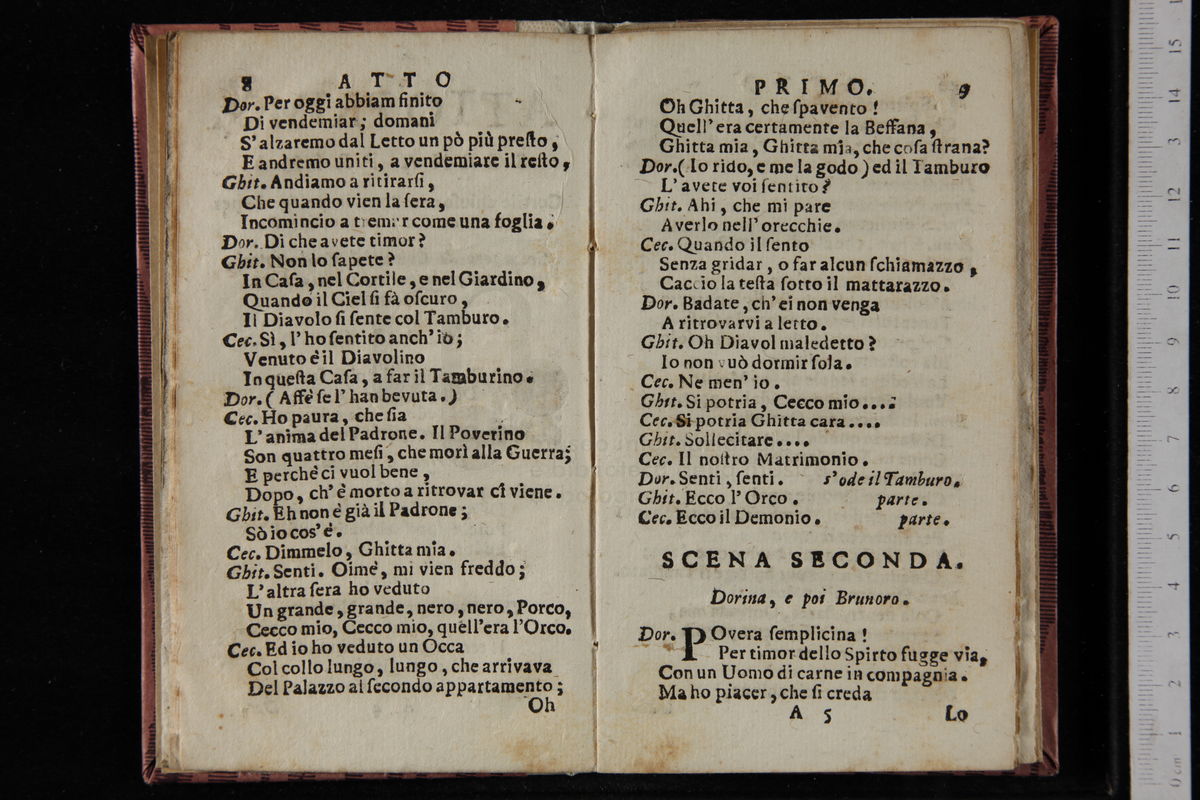 8 ATTO
Dor. Per oggi abbiam finito
Di vendemiar; domani
S'alzaremo dal Letto un pò più preſto,
E andremo uniti, a vendemiare il reſto,
Ghit. Andiamo a ritirarſi,
Che quando vien la ſera,
Incomincio a tremar come una foglia.
Dor. Di che avete timor?
Ghit. Non lo ſapete?
In Caſa, nel Cortile, e nel Giardino,
Quando il Ciel ſi fà oſcuro,
Il Diavolo ſi ſente col Tamburo.
Cec. Sì, l'ho ſentito anch'io;
Venuto è il Diavolino
In queſta Caſa, a far il Tamburino.
Dor. (Affè ſe l'han bevuta.)
Cec. Ho paura, che ſia
L'anima del Padrone. Il Poverino
Son quattro meſi, che morì alla Guerra;
E perchè ci vuol bene,
Dopo, ch'è morto a ritrovar ci viene.
Ghit. Eh non è già il Padrone;
Sò io cos'è.
Cec. Dimmelo, Ghitta mia.
Ghit. Senti. Oimé, mi vien freddo;
L'altra ſera ho veduto
Un grande, grande, nero, nero, Porco,
Cecco mio, Cecco mio, quell'era l'Orco.
Cec. Ed io ho veduto un Occa
Col collo lungo, lungo, che arrivava
Del Palazzo al ſecondo appartamento;
Oh
PRIMO. 9
Oh Ghitta, che ſpavento!
Quell'era certamente la Beffana,
Ghitta mia, Ghitta mia, che coſa ſtrana?
Dor. (Io rido, e me la godo) ed il Tamburo
L'avete voi ſentito?
Ghit. Ahi, che mi pare
Averlo nell'orecchie.
Cec. Quando il ſento
Senza gridar, o far alcun ſchiamazzo,
Caccio la teſta ſotto il mattarazzo.
Dor. Badate, ch'ei non venga
A ritrovarvi a letto.
Ghit. Oh Diavol maledetto?
Io non vuò dormir ſola.
Cec. Ne men'io.
Ghit. Si potria, Cecco mio....
Cec. Si potria Ghitta cara....
Ghit. Sollecitare....
Cec. Il noſtro Matrimonio.
Dor. Senti, ſenti. s'ode il Tamburo.
Ghit. Ecco l'Orco. parte.
Cec. Ecco il Demonio. parte.
SCENA SECONDA.
Dorina, e poi Brunoro.
Dor. POvera ſemplicina!
Per timor dello Spirto fugge via,
Con un Uomo di carne in compagnia.
Ma ho piacer, che ſi creda
A 5 Lo
0 cm 1 2 3 4 5 6 7 8 9 10 11 12 13 14 15